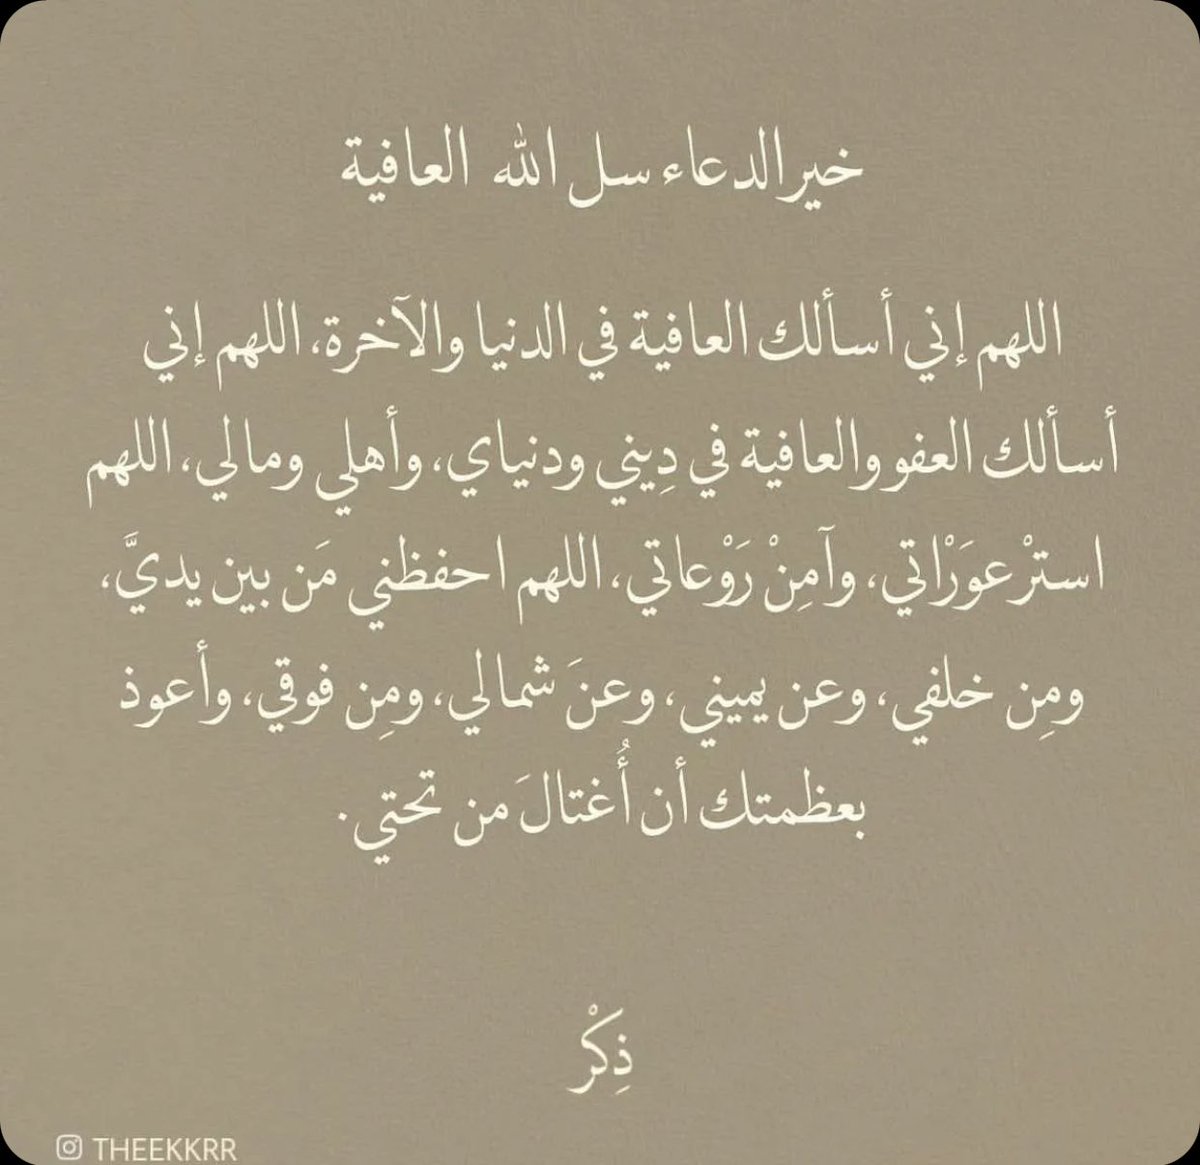 خير الدعاء سل الله العافية
اللهم إني أسألك العافية في الدنيا والآخرة، اللهم إني
أسألك العفو والعافية في دِيني ودنياي، وأهلي ومالي، اللهم
استرْ عوَرْاتي، وآمِنْ رَوْعاتي، اللهم احفظني مَن بين يديَّ،
ومِن خلفي، وعن يميني، وعنَ شمالي، ومِن فوقي، وأعوذ
بعظمتك أن أُغتالَ من تحتي.
ذِكْر
THEEKKRR